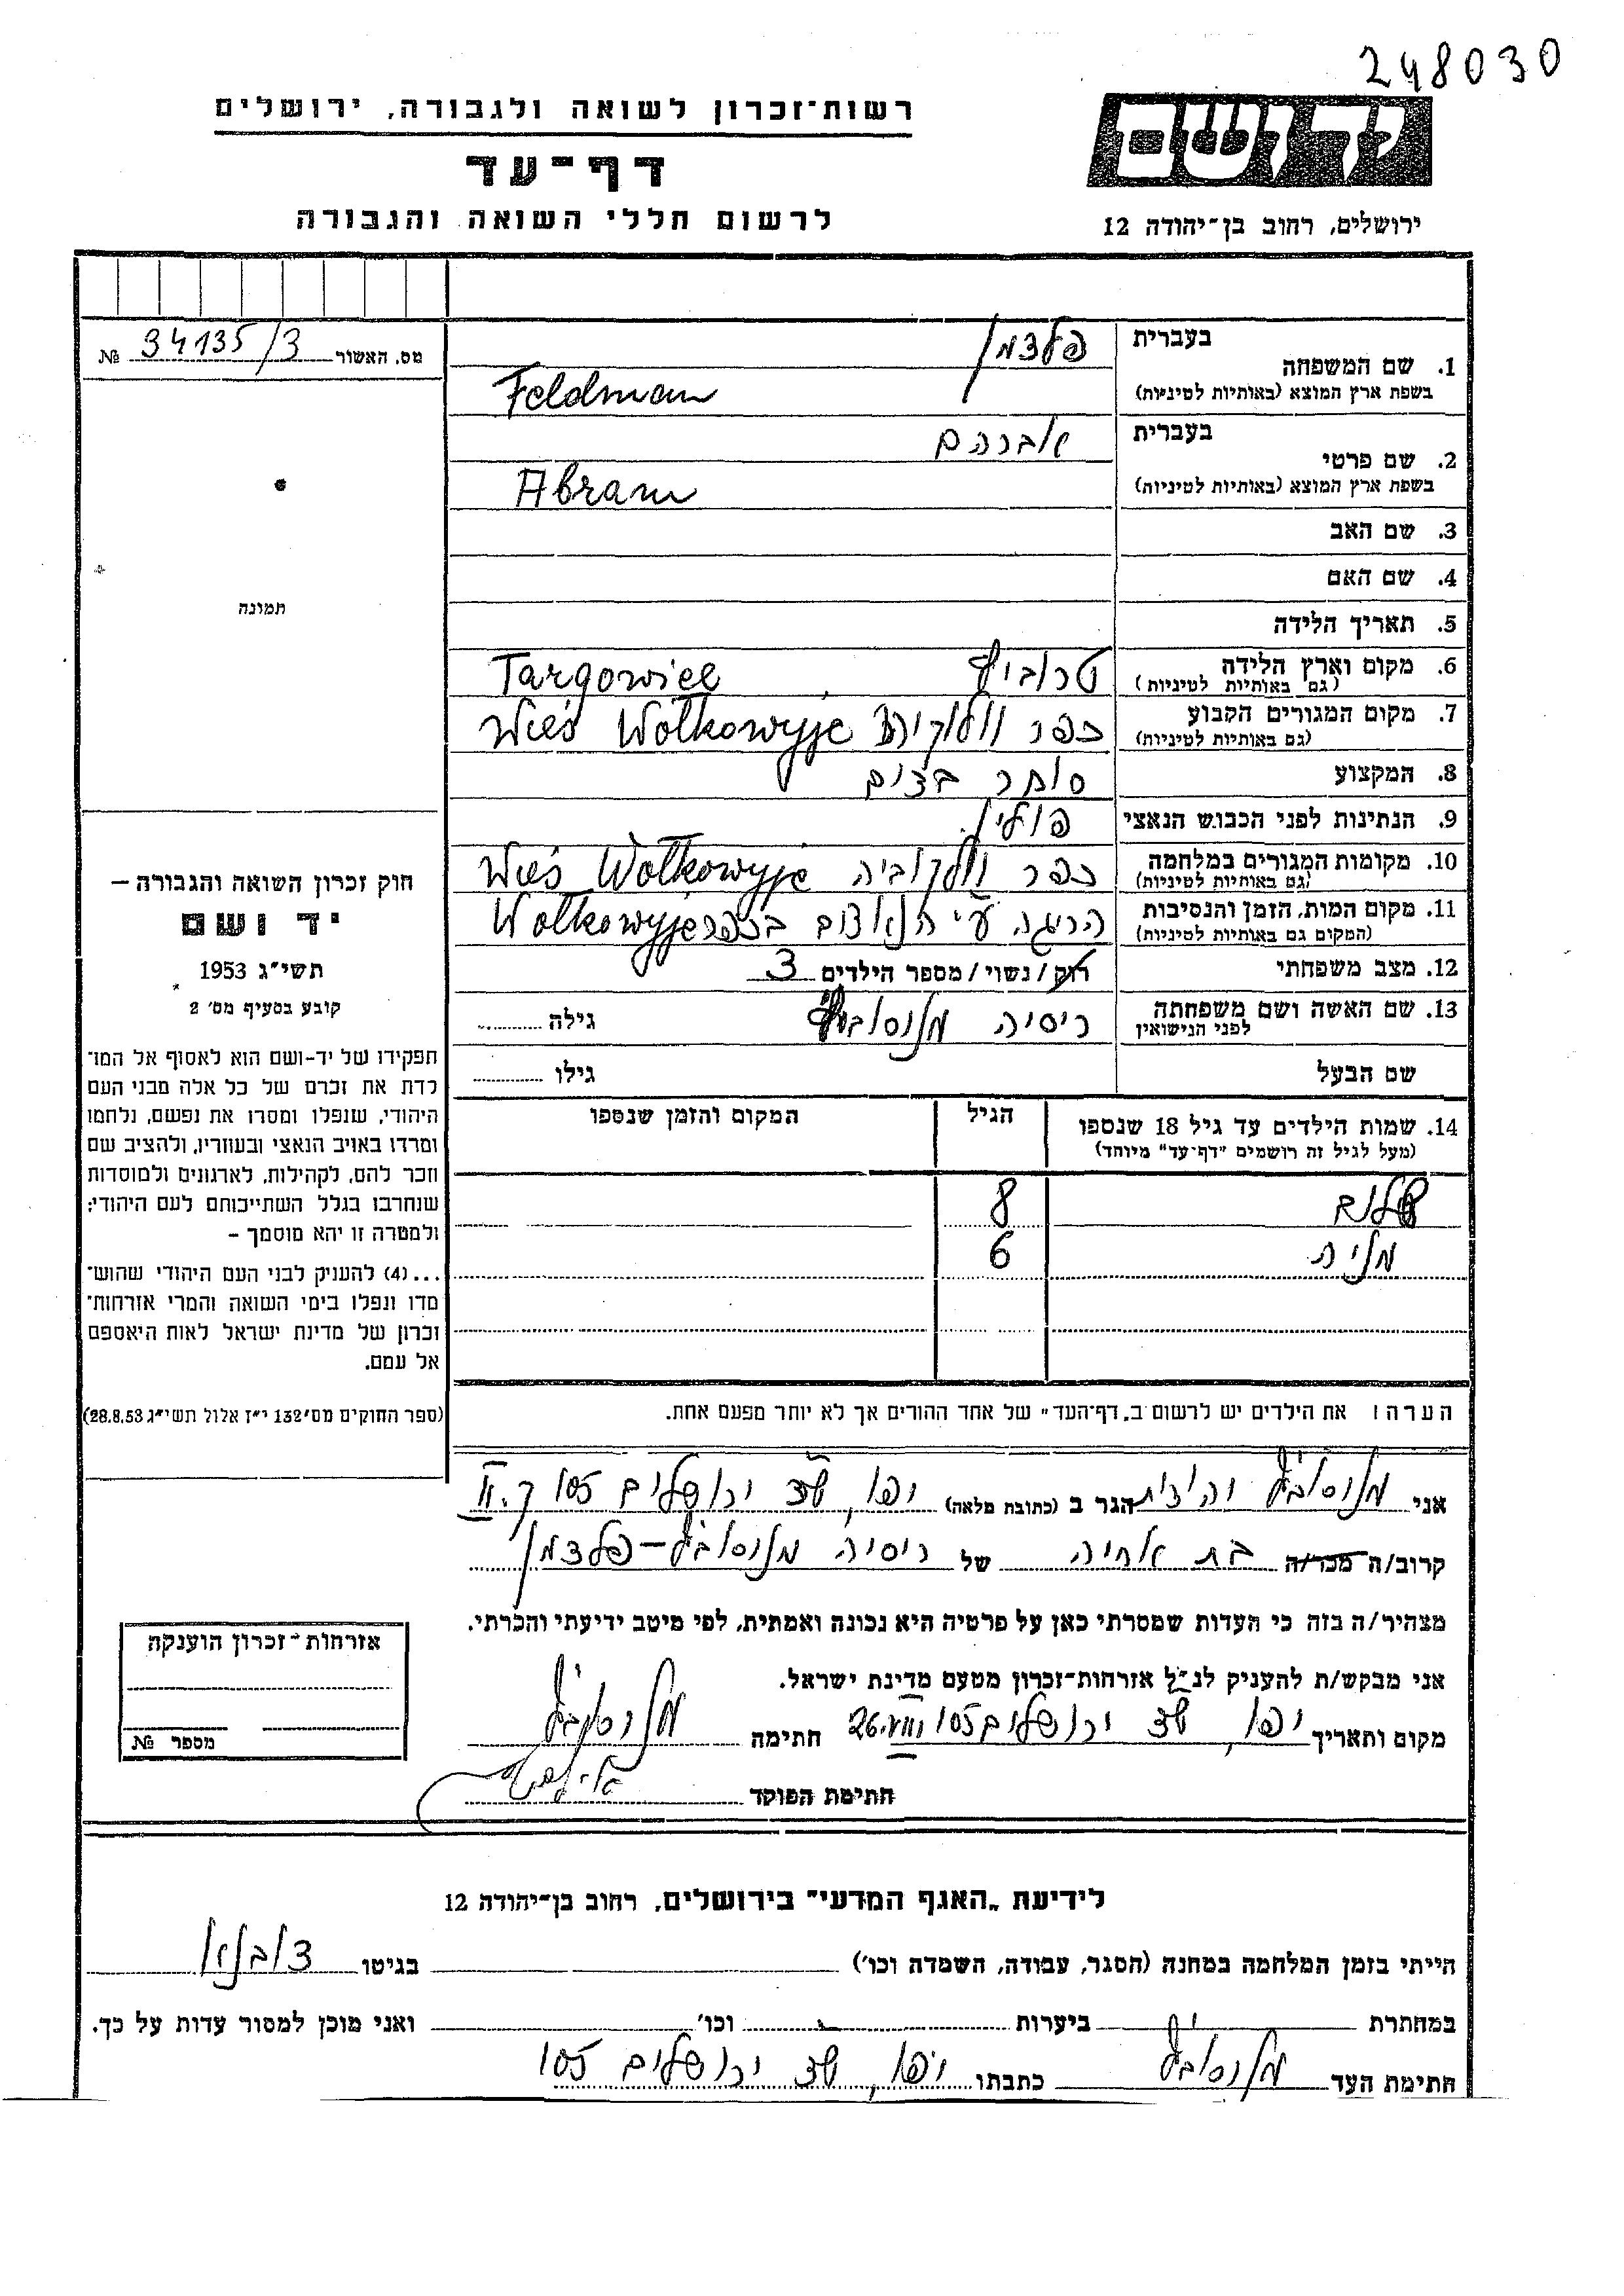 248030
רשות-זכרון לשואה ולגבורה, ירושלים
יד ושם
דף-עד
לרשום חללי השואה והגבורה
ירושלים, רחוב בן-יהודה 12
מס. האשור 34135/3 №
בעברית פלדמן
1. שם המשפחה
בשפת ארץ המוצא (באותיות לטיניות) Feldman
בעברית אברהם
2. שם פרטי
בשפת ארץ המוצא (באותיות לטיניות) Abram
3. שם האב
4. שם האם
5. תאריך הלידה
תמונה
6. מקום וארץ הלידה Targowice
(גם באותיות לטיניות)
7. מקום המגורים הקבוע כפר Wieś Wołkowyje
(גם באותיות לטיניות)
8. המקצוע סוחר בצים
9. הנתינות לפני הכבוש הנאצי פולין
10. מקומות המגורים במלחמה כפר וולקוביה Wieś Wołkowyje
(גם באותיות לטיניות)
11. מקום המות, הזמן והנסיבות הריגה ע"י הנאצים בכפר Wołkowyje
(המקום גם באותיות לטיניות)
12. מצב משפחתי רוק/נשוי/מספר הילדים 3
13. שם האשה ושם משפחתה ריסיה גילה
לפני הנישואין
שם הבעל גילו
14. שמות הילדים עד גיל 18 שנספו הגיל המקום והזמן שנספו
(מעל לגיל זה רושמים "דף-עד" מיוחד)
שלום 8
מניה 6
הערה: את הילדים יש לרשום ב"דף-העד" של אחד ההורים אך לא יותר מפעם אחת.
חוק זכרון השואה והגבורה –
יד ושם
תשי"ג 1953
קובע בסעיף מס' 2
תפקידו של יד-ושם הוא לאסוף אל המו־
לדת את זכרם של כל אלה מבני העם
היהודי, שנפלו ומסרו את נפשם, נלחמו
ומרדו באויב הנאצי ובעוזריו, ולהציב שם
וזכר להם, לקהילות, לארגונים ולמוסדות
שנחרבו בגלל השתייכותם לעם היהודי;
ולמטרה זו יהא מוסמך –
...(4) להעניק לבני העם היהודי שהוש־
מדו ונפלו בימי השואה והמרי אזרחות־
זכרון של מדינת ישראל לאות היאספם
אל עמם.
(ספר החוקים מס' 132 י"ז אלול תשי"ג 28.8.53)
אני יהודית הגר ב (כתובת מלאה) יפו, שד ירושלים 105 ק. II
קרוב/ה מכר/ה בת אחיה של ריסיה פלדמן
מצהיר/ה בזה כי העדות שמסרתי כאן על פרטיה היא נכונה ואמתית, לפי מיטב ידיעתי והכרתי.
אני מבקש/ת להעניק לנ"ל אזרחות-זכרון מטעם מדינת ישראל.
מקום ותאריך יפו, שד ירושלים 105 26.VIII חתימה
חתימת הפוקד
אזרחות-זכרון הוענקה
מספר №
לידיעת "האגף המדעי" בירושלים, רחוב בן-יהודה 12
הייתי בזמן המלחמה במחנה (הסגר, עבודה, השמדה וכו') בגיטו דובנו
במחתרת ביערות וכו' ואני מוכן למסור עדות על כך.
חתימת העד כתבתו יפו, שד ירושלים 105